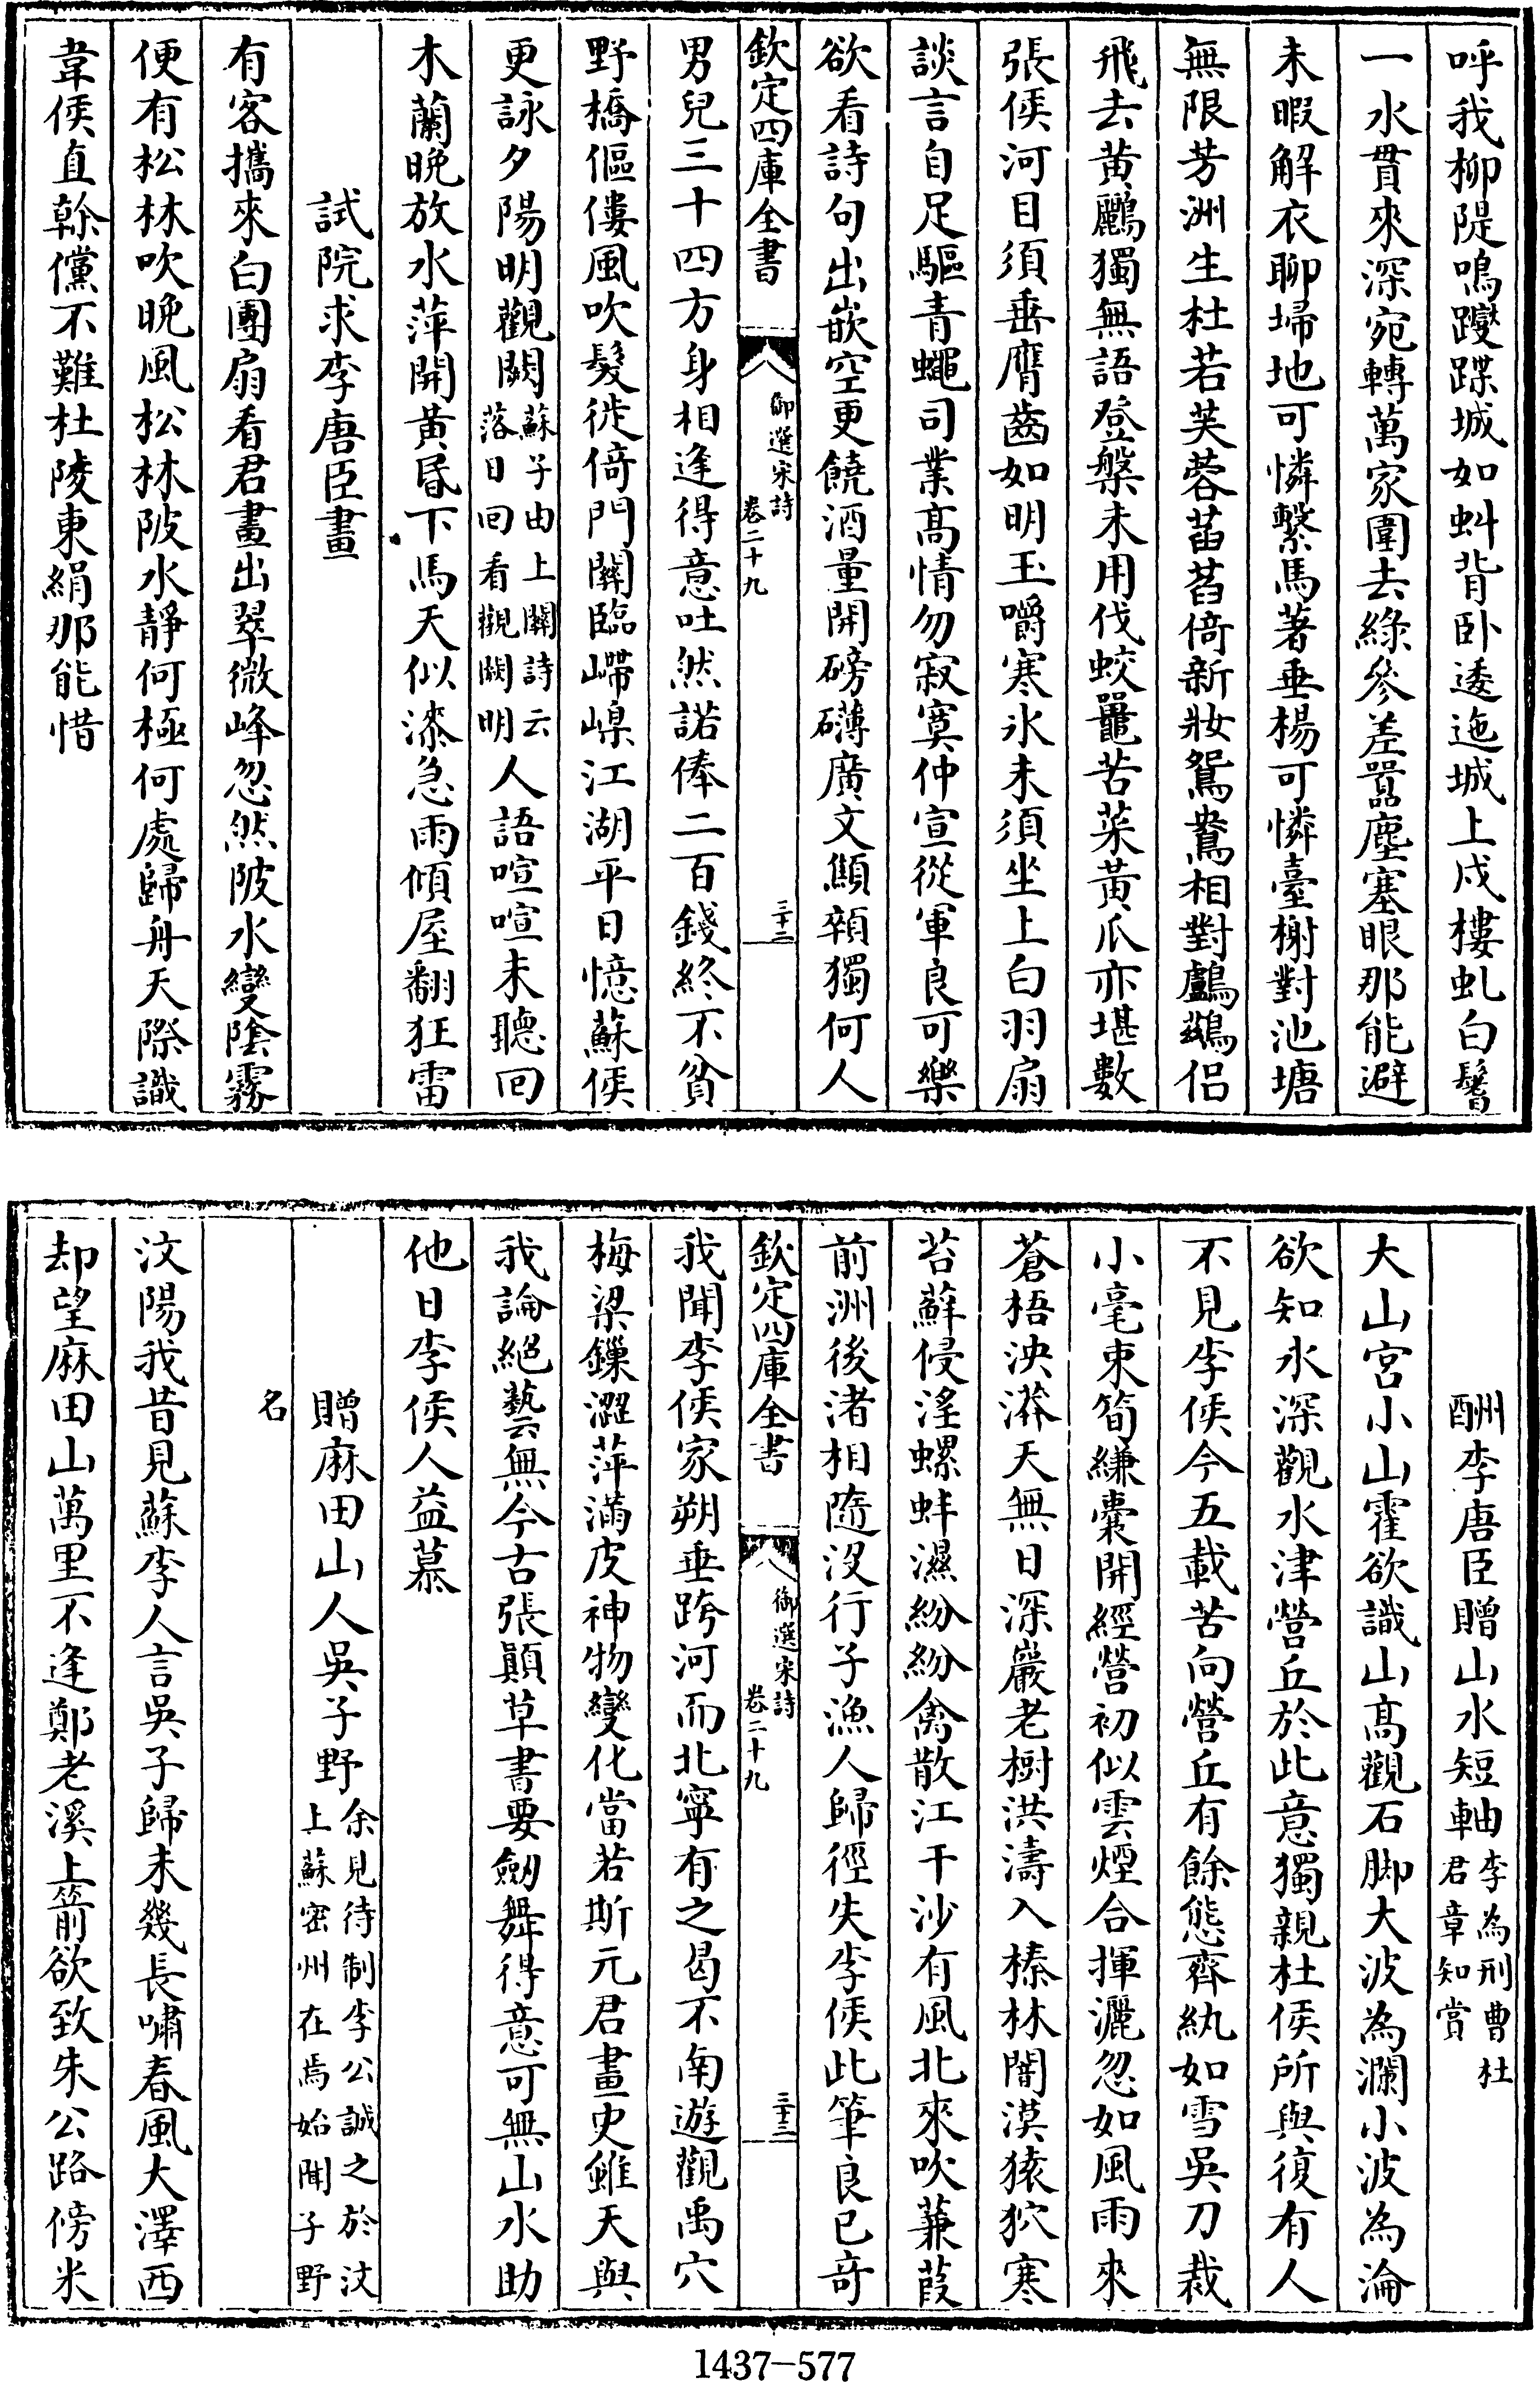 呼我柳隄鳴躞蹀城如虯背卧逶迤城上戍樓虬白鬐
一水貫來深宛轉萬家圍去綠參差囂塵塞眼那能避
未暇解衣聊埽地可憐繫馬著垂楊可憐臺榭對池塘
無限芳洲生杜若芙蓉菡萏倚新妝鴛鴦相對鸕鷀侶
飛去黃鸝獨無語登槃未用伐蛟鼉苦菜黃瓜亦堪數
張侯河目須垂膺齒如明玉嚼寒氷未須坐上白羽扇
談言自足驅青蠅司業髙情勿寂寞仲宣從軍良可樂
欲看詩句出嵌空更饒酒量開磅礴廣文顦顇獨何人
欽定四庫全書
御選宋詩
卷二十九
三十二
男兒三十四方身相逢得意吐然諾俸二百錢終不貧
野橋傴僂風吹髮徙倚門闗臨嵽嵲江湖平日憶蘇侯
更詠夕陽明觀闕蘇子由上闗詩云落日回看觀闕明人語喧喧未聽回
木蘭晚放水萍開黃昏下馬天似漆急雨傾屋翻狂雷
試院求李唐臣畫
有客攜來白團扇看君畫出翠微峰忽然陂水變陰霧
便有松林吹晚風松林陂水靜何極何處歸舟天際識
韋侯直榦儻不難杜陵東絹那能惜
酬李唐臣贈山水短軸李為刑曹杜君章知賞
大山宮小山霍欲識山髙觀石脚大波為瀾小波為淪
欲知水深觀水津營丘於此意獨親杜侯所與復有人
不見李侯今五載苦向營丘有餘態齊紈如雪吳刀裁
小毫束筍縑囊開經營初似雲煙合揮灑忽如風雨來
蒼梧泱漭天無日深巖老樹洪濤入榛林闇漠猿狖寒
苔蘚侵淫螺蚌濕紛紛禽散江干沙有風北來吹蒹葭
前洲後渚相隨沒行子漁人歸徑失李侯此筆良已奇
欽定四庫全書
御選宋詩
卷二十九
三十三
我聞李侯家朔垂跨河而北寧有之曷不南遊觀禹穴
梅梁鏁澀萍滿皮神物變化當若斯元君畫史雖天與
我論絕藝無今古張顛草書要劒舞得意可無山水助
他日李侯人益慕
贈麻田山人吳子野余見待制李公誠之於汶上蘇密州在焉始聞子野
名
汶陽我昔見蘇李人言吳子歸未幾長嘯春風大澤西
却望麻田山萬里不逢鄭老溪上箭欲致朱公路傍米
1437-577